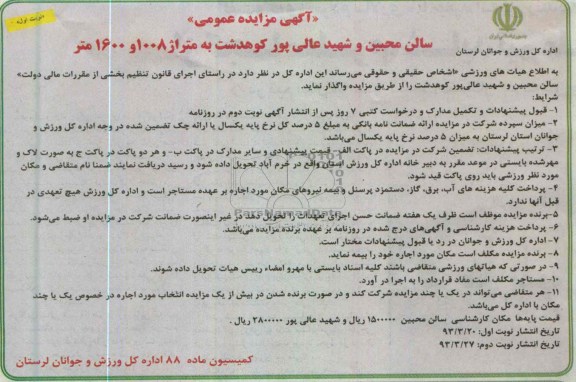 نوبت اول
«آگهی مزایده عمومی»
سالن محبین و شهید عالی پور کوهدشت به متراژ ۱۰۰۸و ۱۶۰۰ متر
اداره کل ورزش و جوانان لرستان
به اطلاع هیات های ورزشی «اشخاص حقیقی و حقوقی می‌رساند این اداره کل در نظر دارد در راستای اجرای قانون تنظیم بخشی از مقررات عالی دولت»
سالن محبین و شهید عالی‌پور کوهدشت را از طریق مزایده واگذار نماید.
شرایط:
۱- قبول پیشنهادات و تکمیل مدارک و درخواست کتبی ۷ روز پس از انتشار آگهی نوبت دوم در روزنامه
۲- میزان سپرده شرکت در مزایده ارائه ضمانت نامه بانکی به مبلغ ۵ درصد کل نرخ پایه یکسال یا ارائه چک تضمین شده در وجه اداره کل ورزش و
جوانان استان لرستان به میزان ۵ درصد نرخ پایه یکسال می‌باشد.
۳- ترتیب پیشنهادات: تضمین شرکت در مزایده در پاکت الف- قیمت پیشنهادی و سایر مدارک در پاکت ب- و هر دو پاکت در پاکت ج به صورت لاک و
مهرشده بایستی در موعد مقرر به دبیر خانه اداره کل ورزش استان واقع در خرم آباد تحویل داده شود و رسید دریافت نمایند ضمنا نام متقاضی و مکان
مورد نظر ورزشی باید روی پاکت قید شود.
۴- پرداخت کلیه هزینه های آب، برق، گاز، دستمزد پرسنل و بیمه نیروهای مکان مورد اجاره بر عهده مستاجر است و اداره کل ورزش هیچ تعهدی در
قبل آنها ندارد.
۵-برنده مزایده موظف است ظرف یک هفته ضمانت حسن اجرای تعهدات را تحویل دهد در غیر اینصورت ضمانت شرکت در مزایده او ضبط می‌شود.
۶- پرداخت هزینه کارشناسی و آگهی‌های درج شده در روزنامه بر عهده برنده مزایده می‌باشد.
۷- اداره کل ورزش و جوانان در رد یا قبول پیشنهادات مختار است.
۸- برنده مزایده مکلف است مکان مورد اجاره خود را بیمه نماید.
۹- در صورتی که هیاتهای ورزشی متقاضی باشند کلیه اسناد بایستی با مهرو امضاء رییس هیات تحویل داده شوند.
۱۰- مستاجر مکلف است مفاد قرارداد را به اجرا در آورد.
۱۱- هر متقاضی می‌تواند در یک یا چند مزایده شرکت کند و در صورت برنده شدن در بیش از یک مزایده انتخاب مورد اجاره در خصوص یک یا چند
مکان با اداره کل می‌باشد.
قیمت پایه‌ها مکان کارشناسی سالن محبین ۱۵۰۰۰۰۰ ریال و شهید عالی پور ۲۸۰۰۰۰۰ ریال .
تاریخ انتشار نوبت اول: ۹۳/۳/۲۰
تاریخ انتشار نوبت دوم: ۹۳/۳/۲۷
کمیسیون ماده ۸۸ اداره کل ورزش و جوانان لرستان